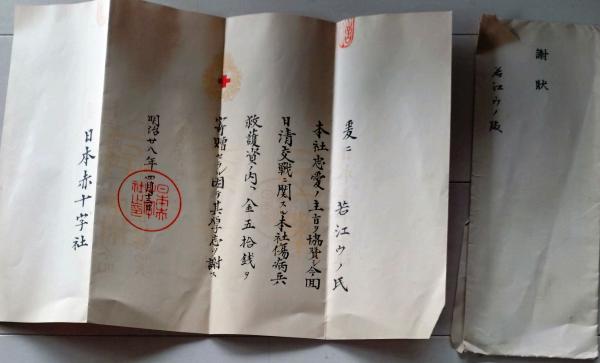 謝状
若江ウノ殿
爰ニ 若江ウノ氏
本社忠愛ノ主旨ヲ協賛シ今回
日清交戦ニ関スル本社傷病兵
救護資ノ内ヘ金五拾銭ヲ
寄贈セラル因テ其厚志ヲ謝ス
明治廿八年四月
日本赤十字社